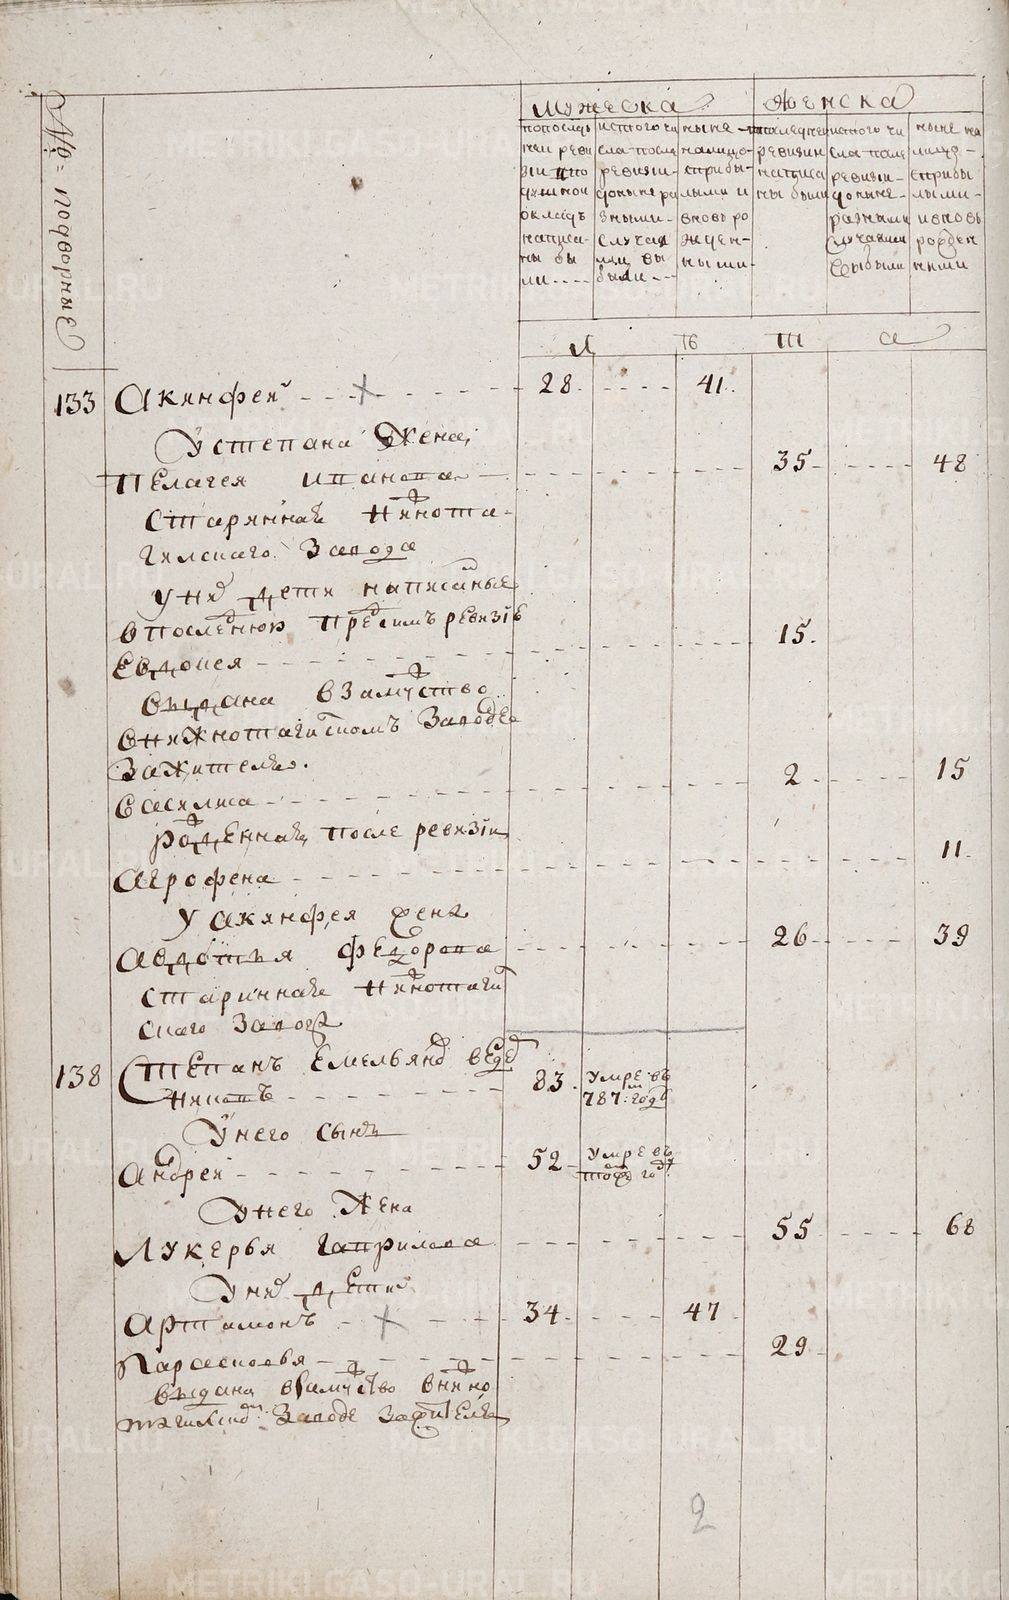 № подворные
Мужеска
Женска
попослед
ней реви
зии ипо
душной
окладъ
написа-
ны бы
ли
истого чи
сла после
ревизии
доныне ра
зными
случая
ми вы
были
ныне
налицо
сприбы-
лыми и
вновь ро
жден-
ными
последней
ревизии
написа
ны были
истого чи
сла после
ревизии
доныне
разными
случаями
выбыли
ныне на
лицо
сприбы
лыми
ивновь
рожден
ными
Лѣта
133 Акинфей 28 41
У степана жена
Пелагея иванова 35 48
старинная Нижнота-
гилскаго Завода
у ней дети написаные
впоследнюю пред симъ ревизiю
Евдокея 15
выдана взамуство
внижнотагилскомъ Заводе
зажителя
василиса 2 15
рожденная после ревизiи
агрофена 11
у акинфея жена
авдотья федорова 26 39
старинная нижнотагил
скаго завода
138 Степанъ Емельянов веде
рниковъ 83 умре въ
787 году
Унего сынъ
Андрей 52 умре въ
том году
Унего жена
Лукерья гаврилова 55 68
Уней дети
Артамонъ 34 47
Парасковья 29
выдана взамуство внижно
тагилском Заводе зажителя
2
METRIKI.GASO-URAL.RU